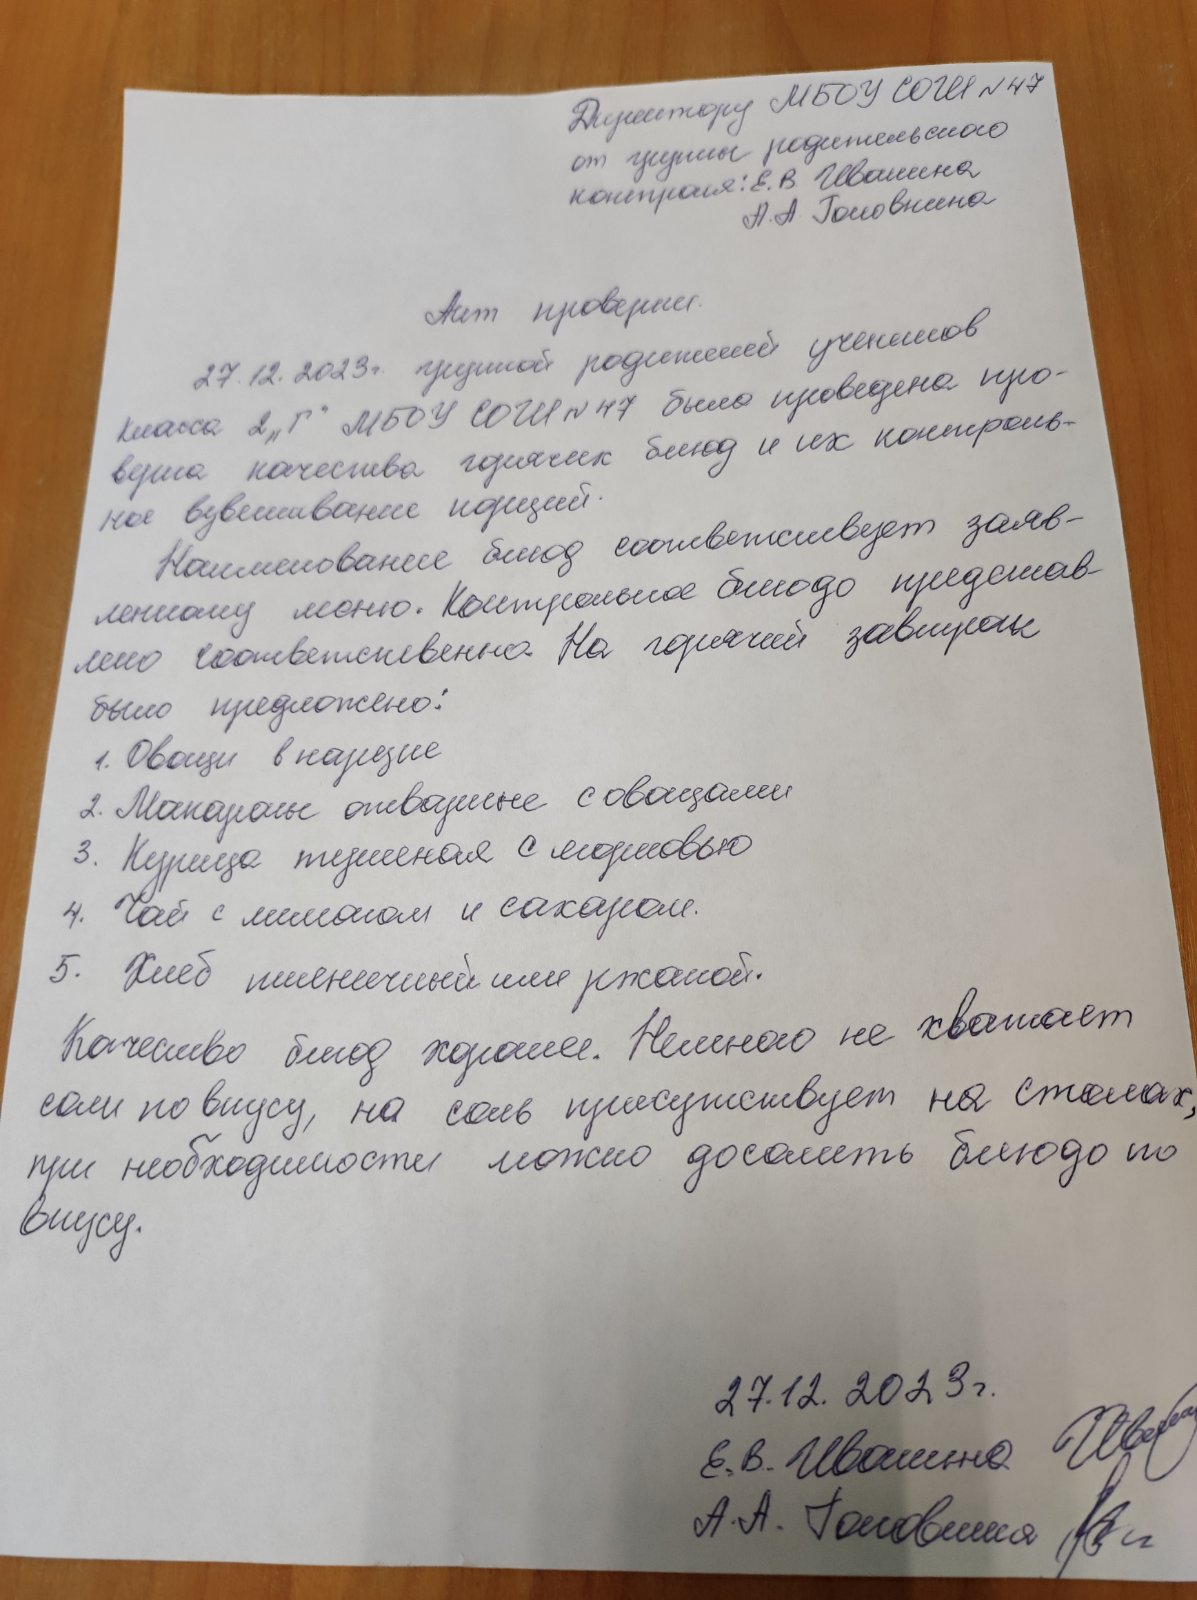 Директору МБОУ СОГШ №47
от группы родительского
контроля: Е.В. Ивашина
А.А. Головнина
Акт проверки.
27.12.2023г. группой родителей учеников
класса 2„Г" МБОУ СОГШ №47 была проведена про-
верка качества горячих блюд и их контроль-
ное взвешивание порций.
Наименование блюд соответствует заяв-
ленному меню. Контрольное блюдо представ-
лено соответственно. На горячий завтрак
было предложено:
1. Овощи в нарезке
2. Макароны отварные с овощами
3. Курица тушеная с морковью
4. Чай с лимоном и сахаром.
5. Хлеб пшеничный или ржаной.
Качество блюд хорошее. Немного не хватает
соли по вкусу, но соль присутствует на столах,
при необходимости можно досолить блюдо по
вкусу.
27.12.2023г.
Е.В. Ивашина
А.А. Головнина